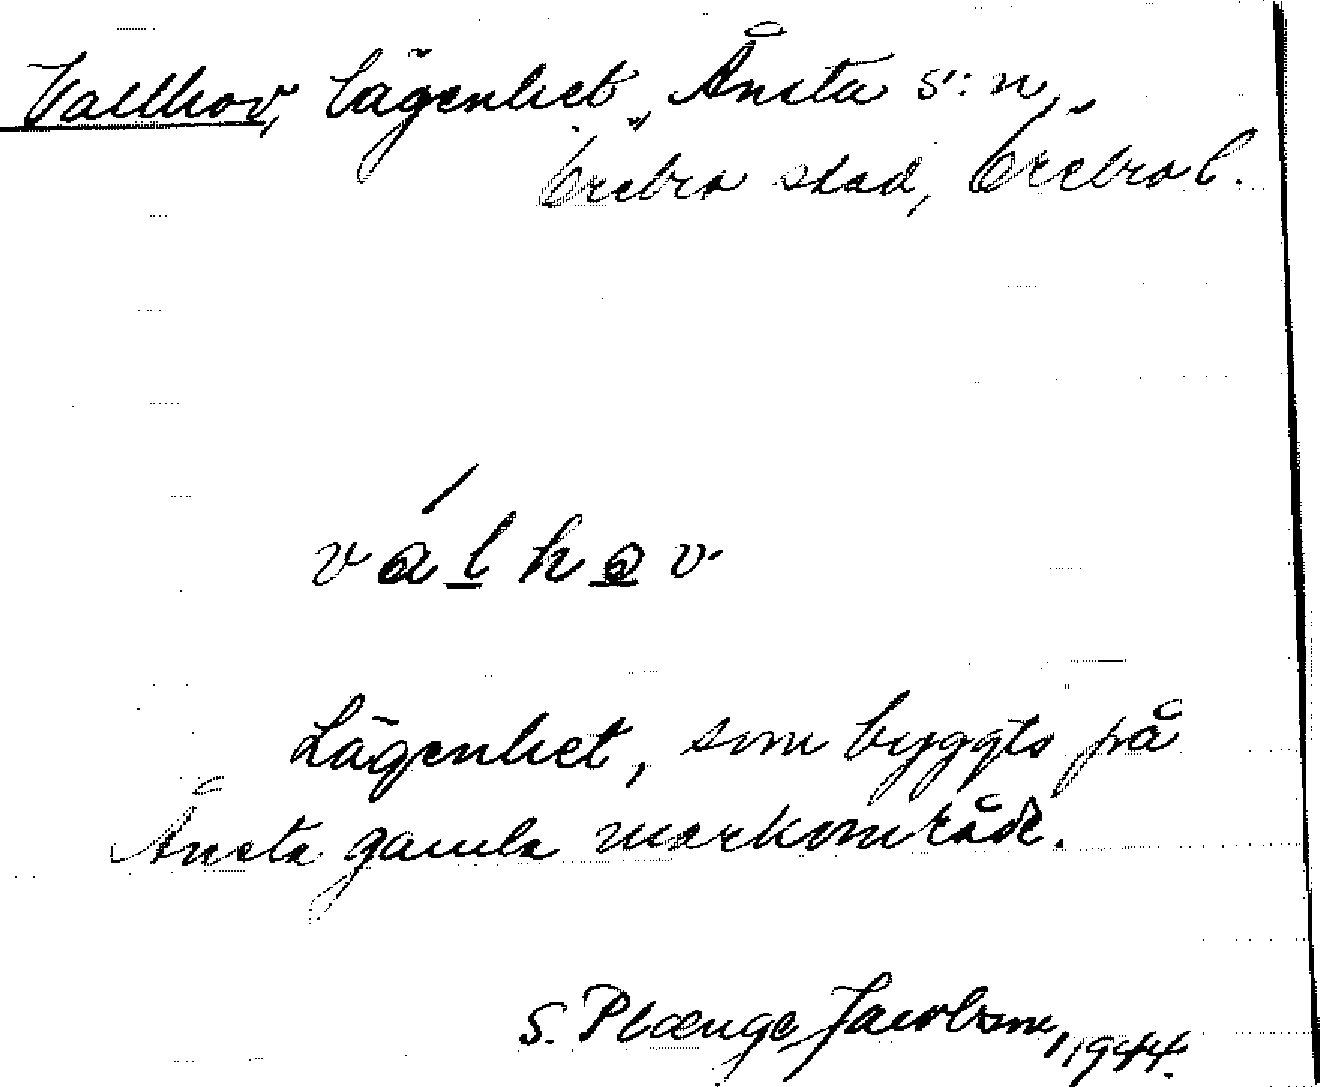 Vallhov, lägenhet, Ånsta s:n,
Örebro stad, Örebro l.
válhov
Lägenhet, som byggts på
Ånsta gamla markområde.
S. Plænge Jacobson, 1944.